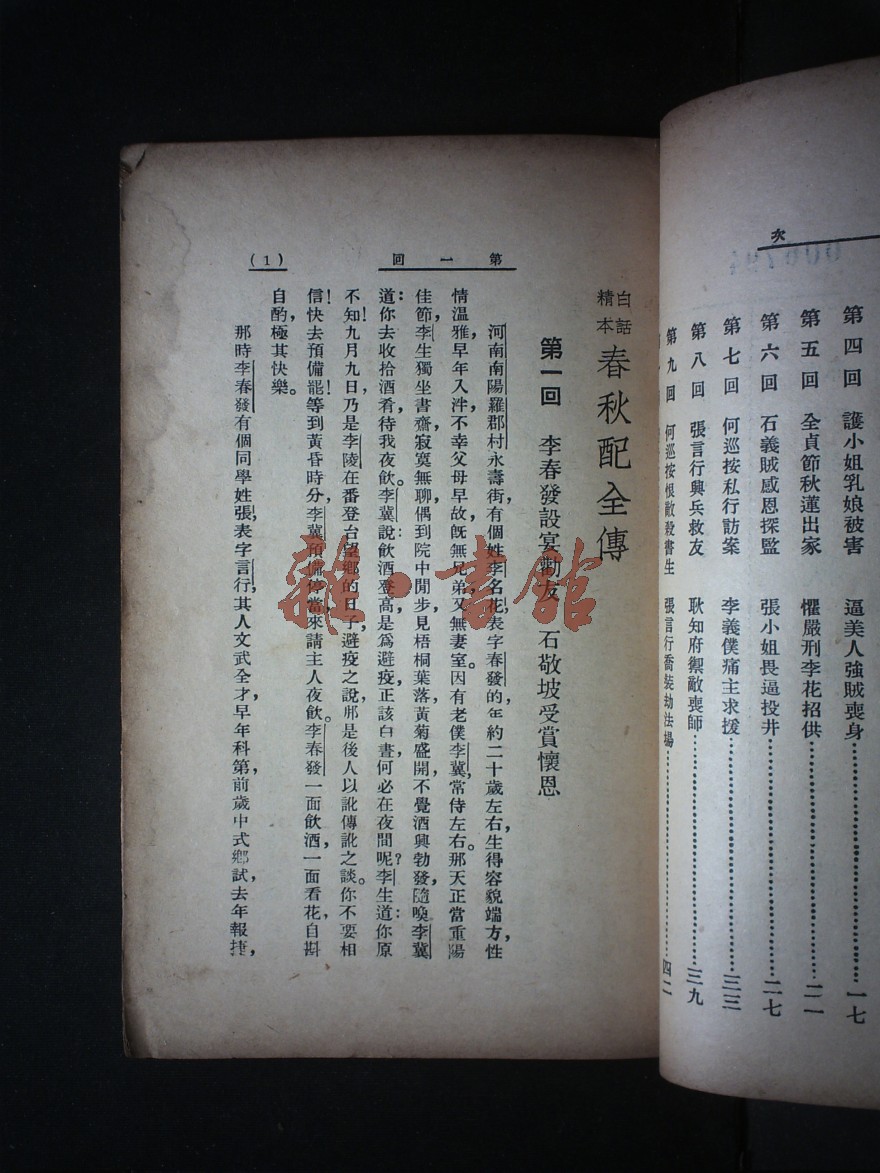 次
第四回　護小姐乳娘被害　逼美人強賊喪身………一七
第五回　全貞節秋蓮出家　懼嚴刑李花招供………二一
第六回　石義賊感恩探監　張小姐畏逼投井………二七
第七回　何巡按私行訪案　李義僕痛主求援………三三
第八回　張言行興兵救友　耿知府禦敵喪師………三九
第九回　何巡按恨敵殺書生　張言行喬裝劫法場………四二
白話精本　春秋配全傳
第一回　李春發設宴勸友　石敬坡受賞懷恩
河南南陽羅郡村永壽街，有個姓李名花，表字春發的，年約二十歲左右，生得容貌端方，性
情溫雅，早年入泮，不幸父母早故，旣無兄弟，又無妻室。因有老僕李冀，常侍左右。那天正當重陽
佳節，李生獨坐書齋，寂寞無聊，偶到院中閒步，見梧桐葉落，黃菊盛開，不覺酒興勃發，隨喚李冀
道：你去收拾酒肴，待我夜飲。李冀說：飲酒登高，是爲避疫，正該白晝，何必在夜間呢？李生道：你原
不知！九月九日，乃是李陵在番登台望鄉的日子，避疫之說，那是後人以訛傳訛之談。你不要相
信，快去預備罷！等到黃昏時分，李冀預備停當，來請主人夜飲。李春發一面飲酒，一面看花，自斟
自酌，極其快樂。
那時李春發有個同學姓張，表字言行，其人文武全才，早年科第，前歲中式鄉試，去年報捷，
第一回
(1)
雜·書館